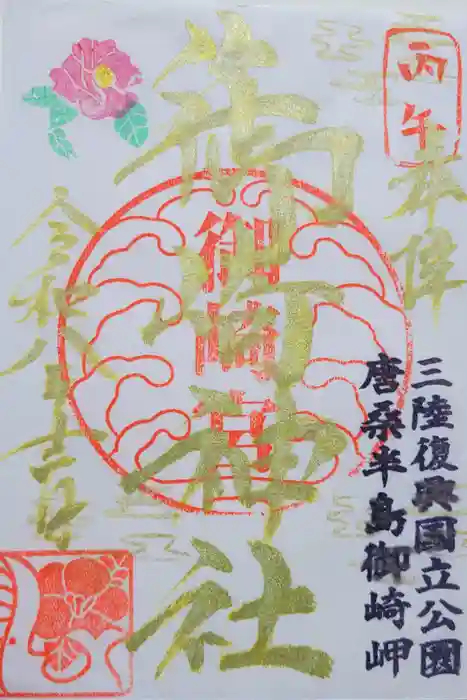 丙午
奉拝
三陸復興國立公園
唐桑半島御崎岬
御崎神社
御崎宮
令和八年